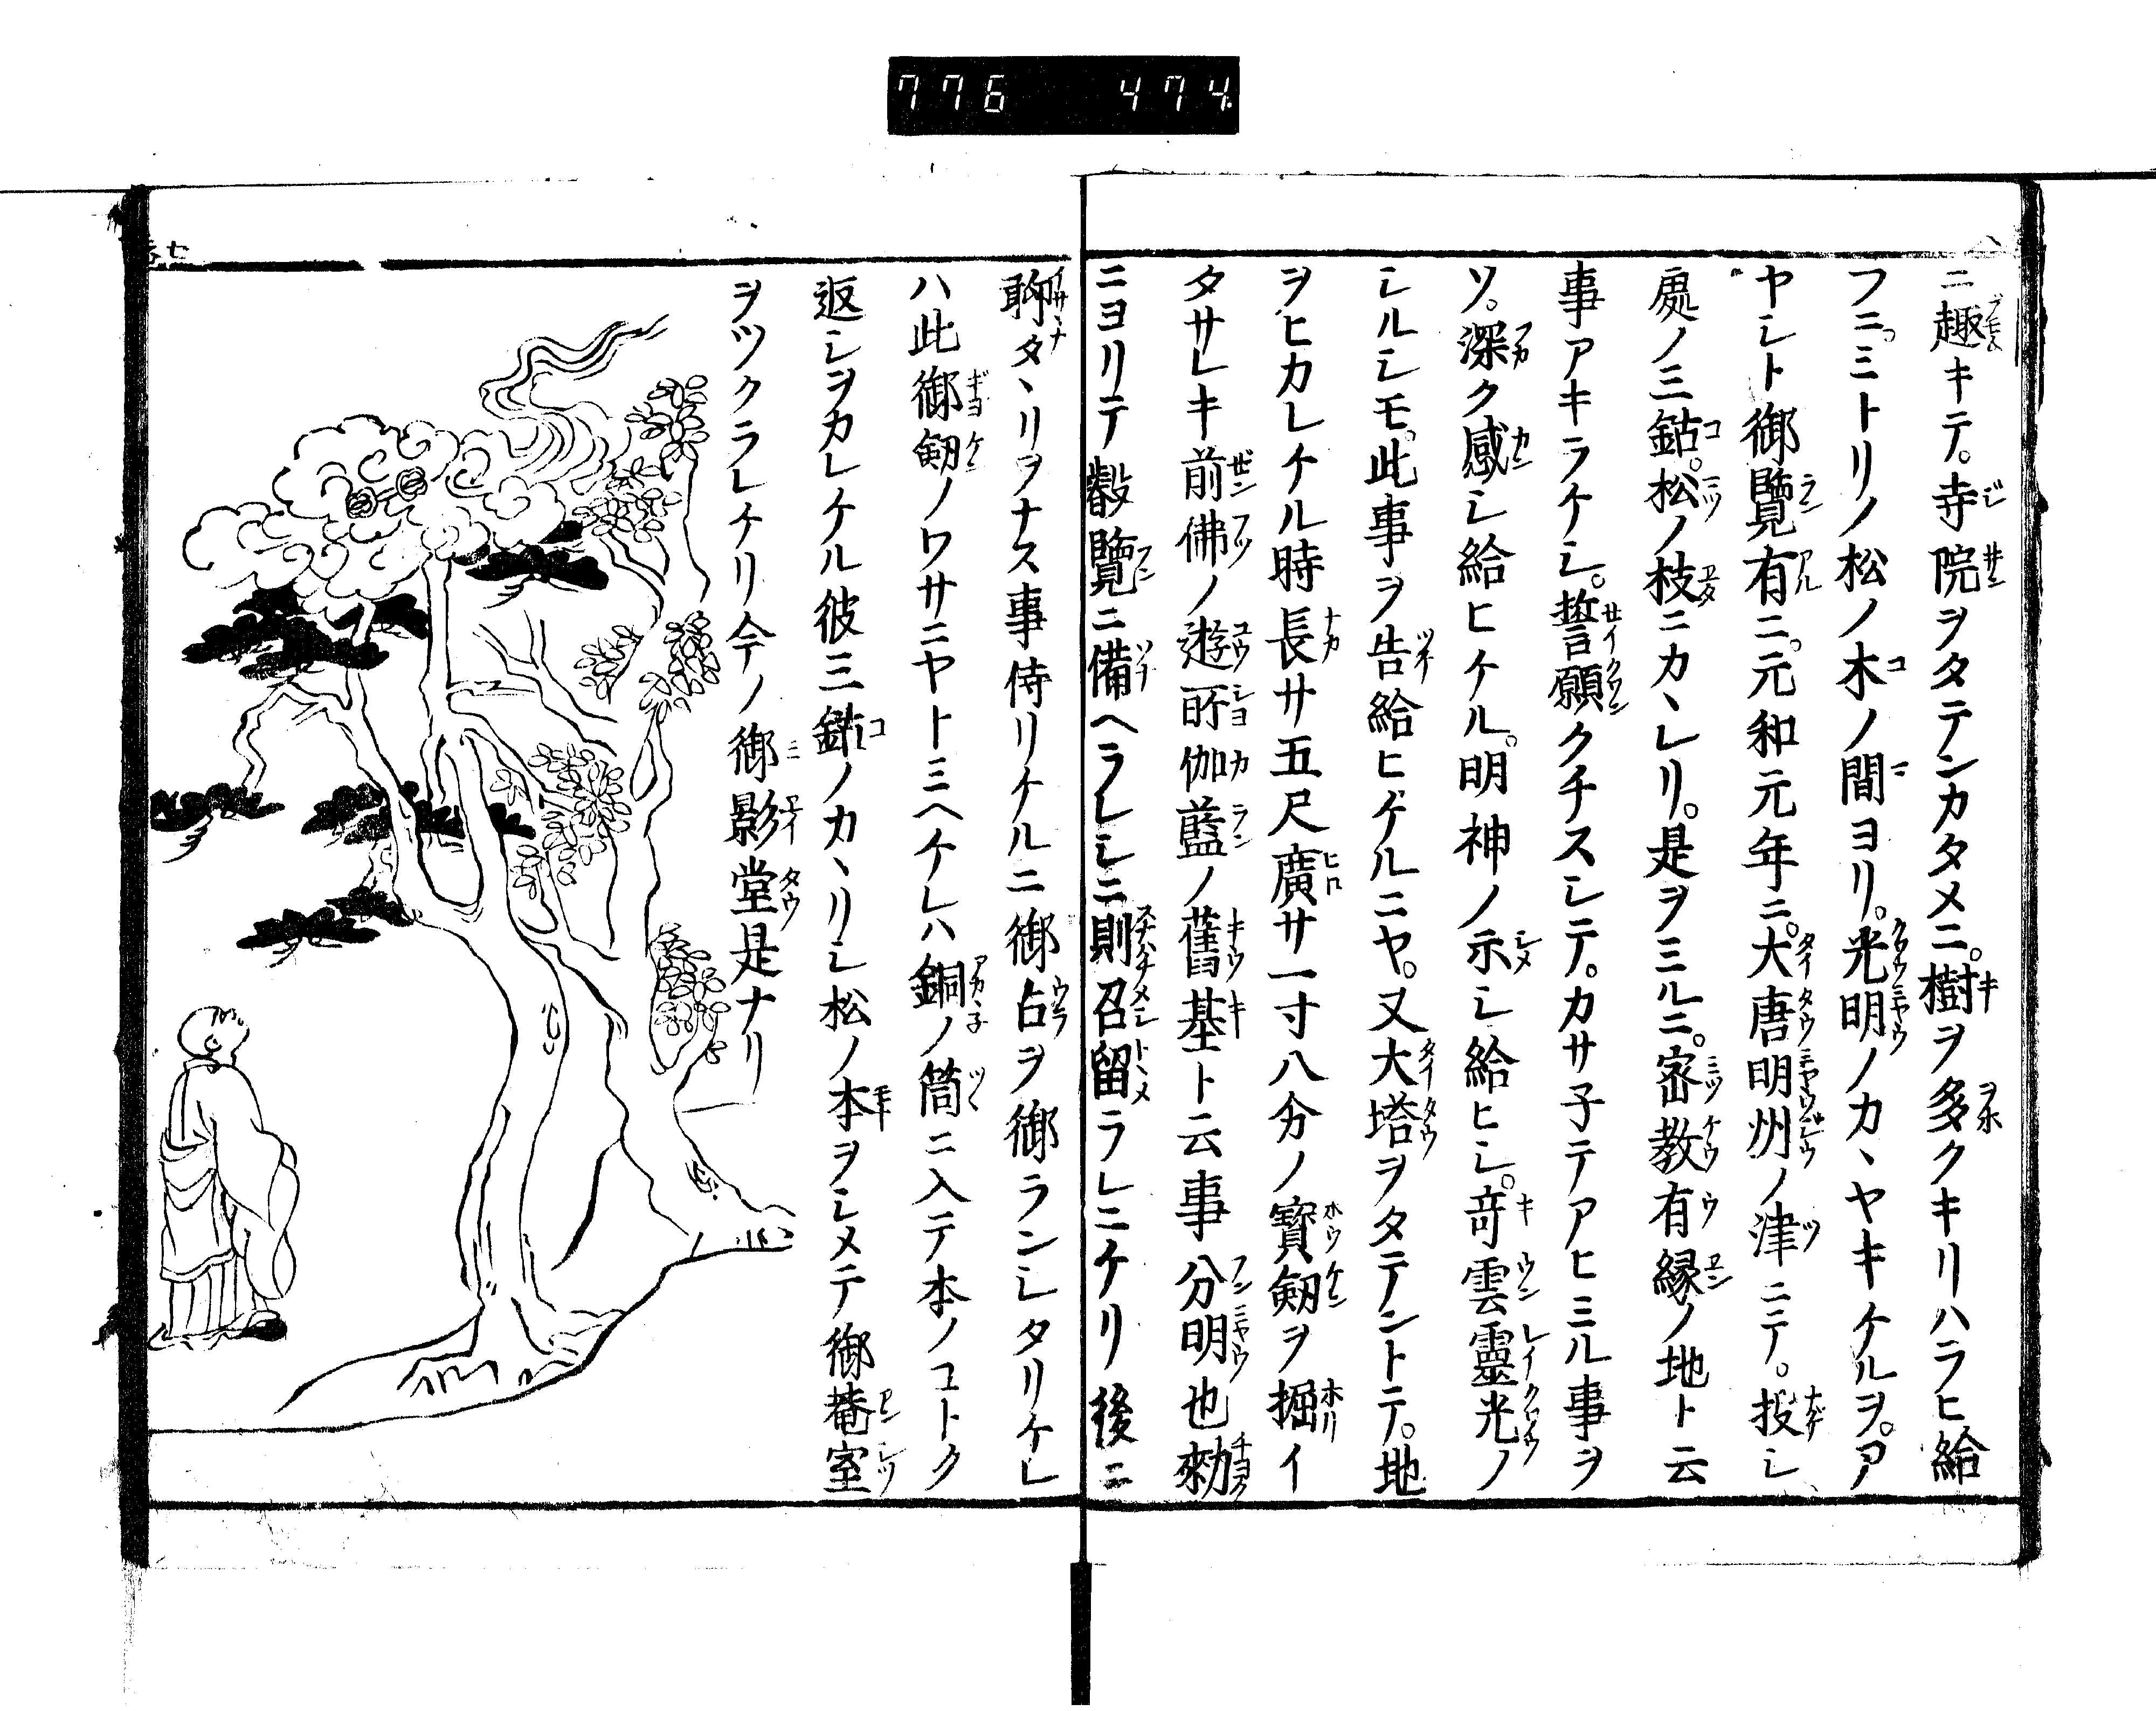 776 474
ニ趣キテ。寺院ヲタテンカタメニ。樹ヲ多クキリハラヒ給
フニ。ミトリノ松ノ木ノ間ヨリ。光明ノカヽヤキケルヲ。ア
ヤシト御覽有ニ。元和元年ニ。大唐明州ノ津ニテ。投シ
處ノ三鈷。松ノ枝ニカヽレリ。是ヲミルニ。宻教有縁ノ地ト云
事アキラケシ。誓願クチスシテ。カサ子テアヒミル事ヲ
ソ。深ク感シ給ヒケル。明神ノ示シ給ヒシ。奇雲靈光ノ
シルシモ。此事ヲ告給ヒゲルニヤ。又大塔ヲタテントテ。地
ヲヒカレケル時長サ五尺廣サ一寸八分ノ寳劔ヲ掘イ
タサレキ前佛ノ遊所伽藍ノ舊基ト云事分明也勅
ニヨリテ叡覽ニ備ヘラレシニ則召留ラレニケリ後ニ
聊タヽリヲナス事侍リケルニ御占ヲ御ランシタリケレ
ハ此御劔ノワサニヤトミヘケレハ銅ノ筒ニ入テ本ノコトク
返シヲカレケル彼三鈷ノカヽリシ松ノ本ヲシメテ御菴室
ヲツクラレケリ今ノ御影堂是ナリ